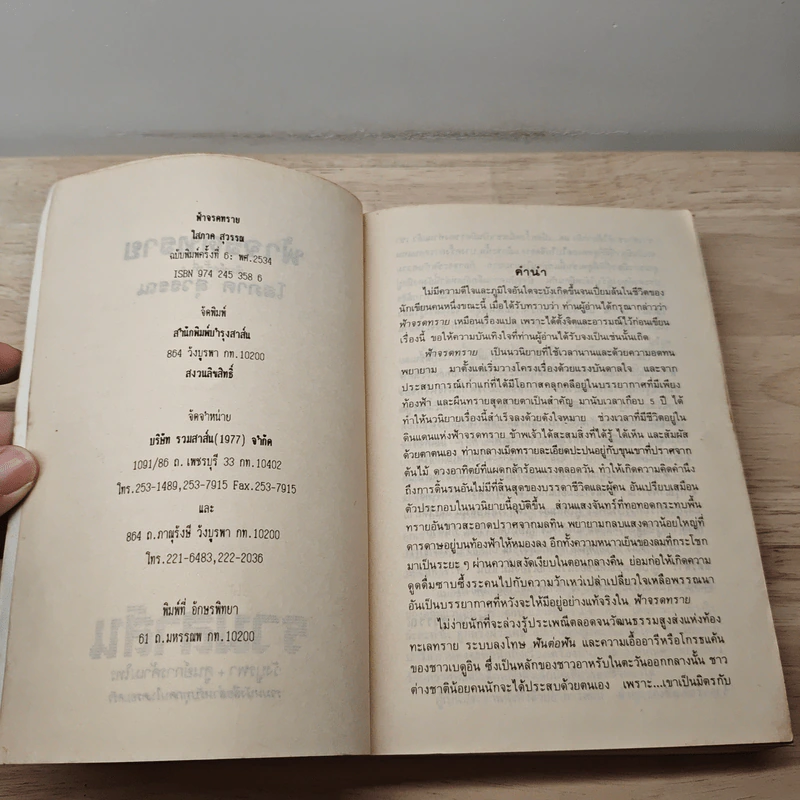 ฟ้าจรดทราย
โสภาค สุวรรณ
ฉบับพิมพ์ครั้งที่ 6: พศ.2534
ISBN 974 245 358 6
จัดพิมพ์
สำนักพิมพ์บำรุงสาส์น
864 วังบูรพา กท.10200
สงวนลิขสิทธิ์
จัดจำหน่าย
บริษัท รวมสาส์น(1977) จำกัด
1091/86 ถ. เพชรบุรี 33 กท.10402
โทร.253-1489,253-7915 Fax.253-7915
และ
864 ถ.ภาณุรังษี วังบูรพา กท.10200
โทร.221-6483,222-2036
พิมพ์ที่ อักษรพิทยา
61 ถ.มหรรณพ กท.10200
คำนำ
ไม่มีความดีใจและภูมิใจอันใดจะบังเกิดขึ้นจนเปี่ยมล้นในชีวิตของ
นักเขียนคนหนึ่งขณะนี้ เมื่อได้รับทราบว่า ท่านผู้อ่านได้กรุณากล่าวว่า
ฟ้าจรดทราย เหมือนเรื่องแปล เพราะได้ตั้งจิตและอารมณ์ไว้ก่อนเขียน
เรื่องนี้ ขอให้ความบันเทิงใจที่ท่านผู้อ่านได้รับจงเป็นเช่นนั้นเถิด
ฟ้าจรดทราย เป็นนวนิยายที่ใช้เวลานานและด้วยความอดทน
พยายาม มาตั้งแต่เริ่มวางโครงเรื่องด้วยแรงบันดาลใจ และจาก
ประสบการณ์เก่าแก่ที่ได้มีโอกาสคลุกคลีอยู่ในบรรยากาศที่มีเพียง
ท้องฟ้า และผืนทรายสุดสายตาเป็นสำคัญ มานับเวลาเกือบ 5 ปี ได้
ทำให้นวนิยายเรื่องนี้สำเร็จลงด้วยดังใจหมาย ช่วงเวลาที่มีชีวิตอยู่ใน
ดินแดนแห่งฟ้าจรดทราย ข้าพเจ้าได้สะสมสิ่งที่ได้รู้ ได้เห็น และสัมผัส
ด้วยตาตนเอง ท่ามกลางเม็ดทรายละเอียดปะปนอยู่กับขุนเขาที่ปราศจาก
ต้นไม้ ดวงอาทิตย์ที่แผดกล้าร้อนแรงตลอดวัน ทำให้เกิดความคิดคำนึง
ถึงการดิ้นรนอันไม่มีที่สิ้นสุดของบรรดาชีวิตและผู้คน อันเปรียบเสมือน
ตัวประกอบในนวนิยายนี้อุบัติขึ้น ส่วนแสงจันทร์ที่ทอทอดกระทบพื้น
ทรายอันขาวสะอาดปราศจากมลทิน พยายามกลบแสงดาวน้อยใหญ่ที่
ดารดาษอยู่บนท้องฟ้าให้หมองลง อีกทั้งความหนาวเย็นของลมที่กระโชก
มาเป็นระยะ ๆ ผ่านความสงัดเงียบในตอนกลางคืน ย่อมก่อให้เกิดความ
ดูดดื่มซาบซึ้งระคนไปกับความว้าเหว่เปล่าเปลี่ยวใจเหลือพรรณนา
อันเป็นบรรยากาศที่หวังจะให้มีอยู่อย่างแท้จริงใน ฟ้าจรดทราย
ไม่ง่ายนักที่จะล่วงรู้ประเพณีตลอดจนวัฒนธรรมสูงส่งแห่งท้อง
ทะเลทราย ระบบลงโทษ ฟันต่อฟัน และความเอื้ออารีหรือโกรธแค้น
ของชาวเบดูอิน ซึ่งเป็นหลักของชาวอาหรับในตะวันออกกลางนั้น ชาว
ต่างชาติน้อยคนนักจะได้ประสบด้วยตนเอง เพราะ...เขาเป็นมิตรกับ